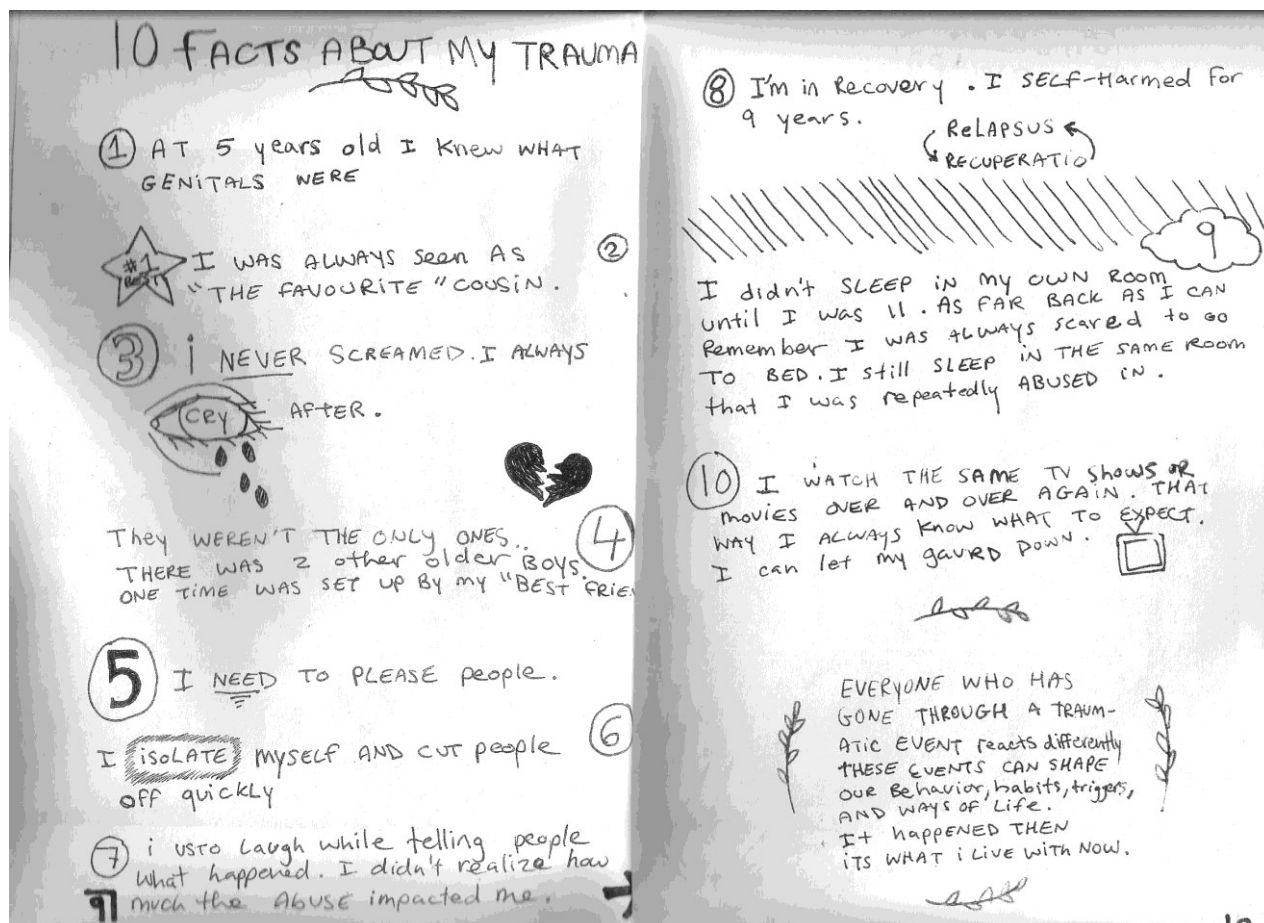 10 FACTS ABOUT MY TRAUMA
1 AT 5 years old I knew WHAT
GENITALS WERE
#1
BEST
I WAS ALWAYS Seen AS 2
"THE FAVOURITE" COUSIN.
3 i NEVER SCREAMED. I ALWAYS
CRY AFTER.
They WEREN'T THE ONLY ONES.. 4
THERE WAS 2 other older BOYS.
ONE TIME WAS SET UP BY my "BEST FRIE
5 I NEED TO PLEASE people.
I isoLATE myself AND CUT people 6
OFF quickly
7 i usto Laugh while telling people
what happened. I didn't realize how
much the ABUSE impacted me.
9
8 I'm in Recovery. I SELF-Harmed for
9 years.
ReLAPSUS
RECUPERATIO
9
I didn't SLEEP IN MY OWN ROOM
until I was 11. AS FAR BACK AS I CAN
Remember I WAS ALWAYS scared to GO
TO BED. I still SLEEP IN THE SAME ROOM
that I was repeatedly ABUSED IN.
10 I WATCH THE SAME TV Shows OR
movies OVER AND OVER AGAIN. THAT
WAY I ALWAYS KNOW WHAT TO EXPECT.
I can let my gaurd DOWN.
EVERYONE WHO HAS
GONE THROUGH A TRAUM-
ATIC EVENT reacts differently
THESE EVENTS CAN SHAPE
OUR Behavior, habits, triggers,
AND WAYS OF Life.
It happened THEN
iTS WHAT i LIVE WITH NOW.